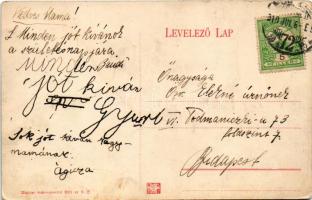 Kedves Mama!
Minden jót kívánok
a születésnapjára
Minden
jót kíván
Gyuri
Sok jót kíván nagy-
mamának
LEVELEZŐ LAP
Őnagysága
Elekné úrnőnek
VI. Podmaniczki u 73
földszint 7.
Budapest